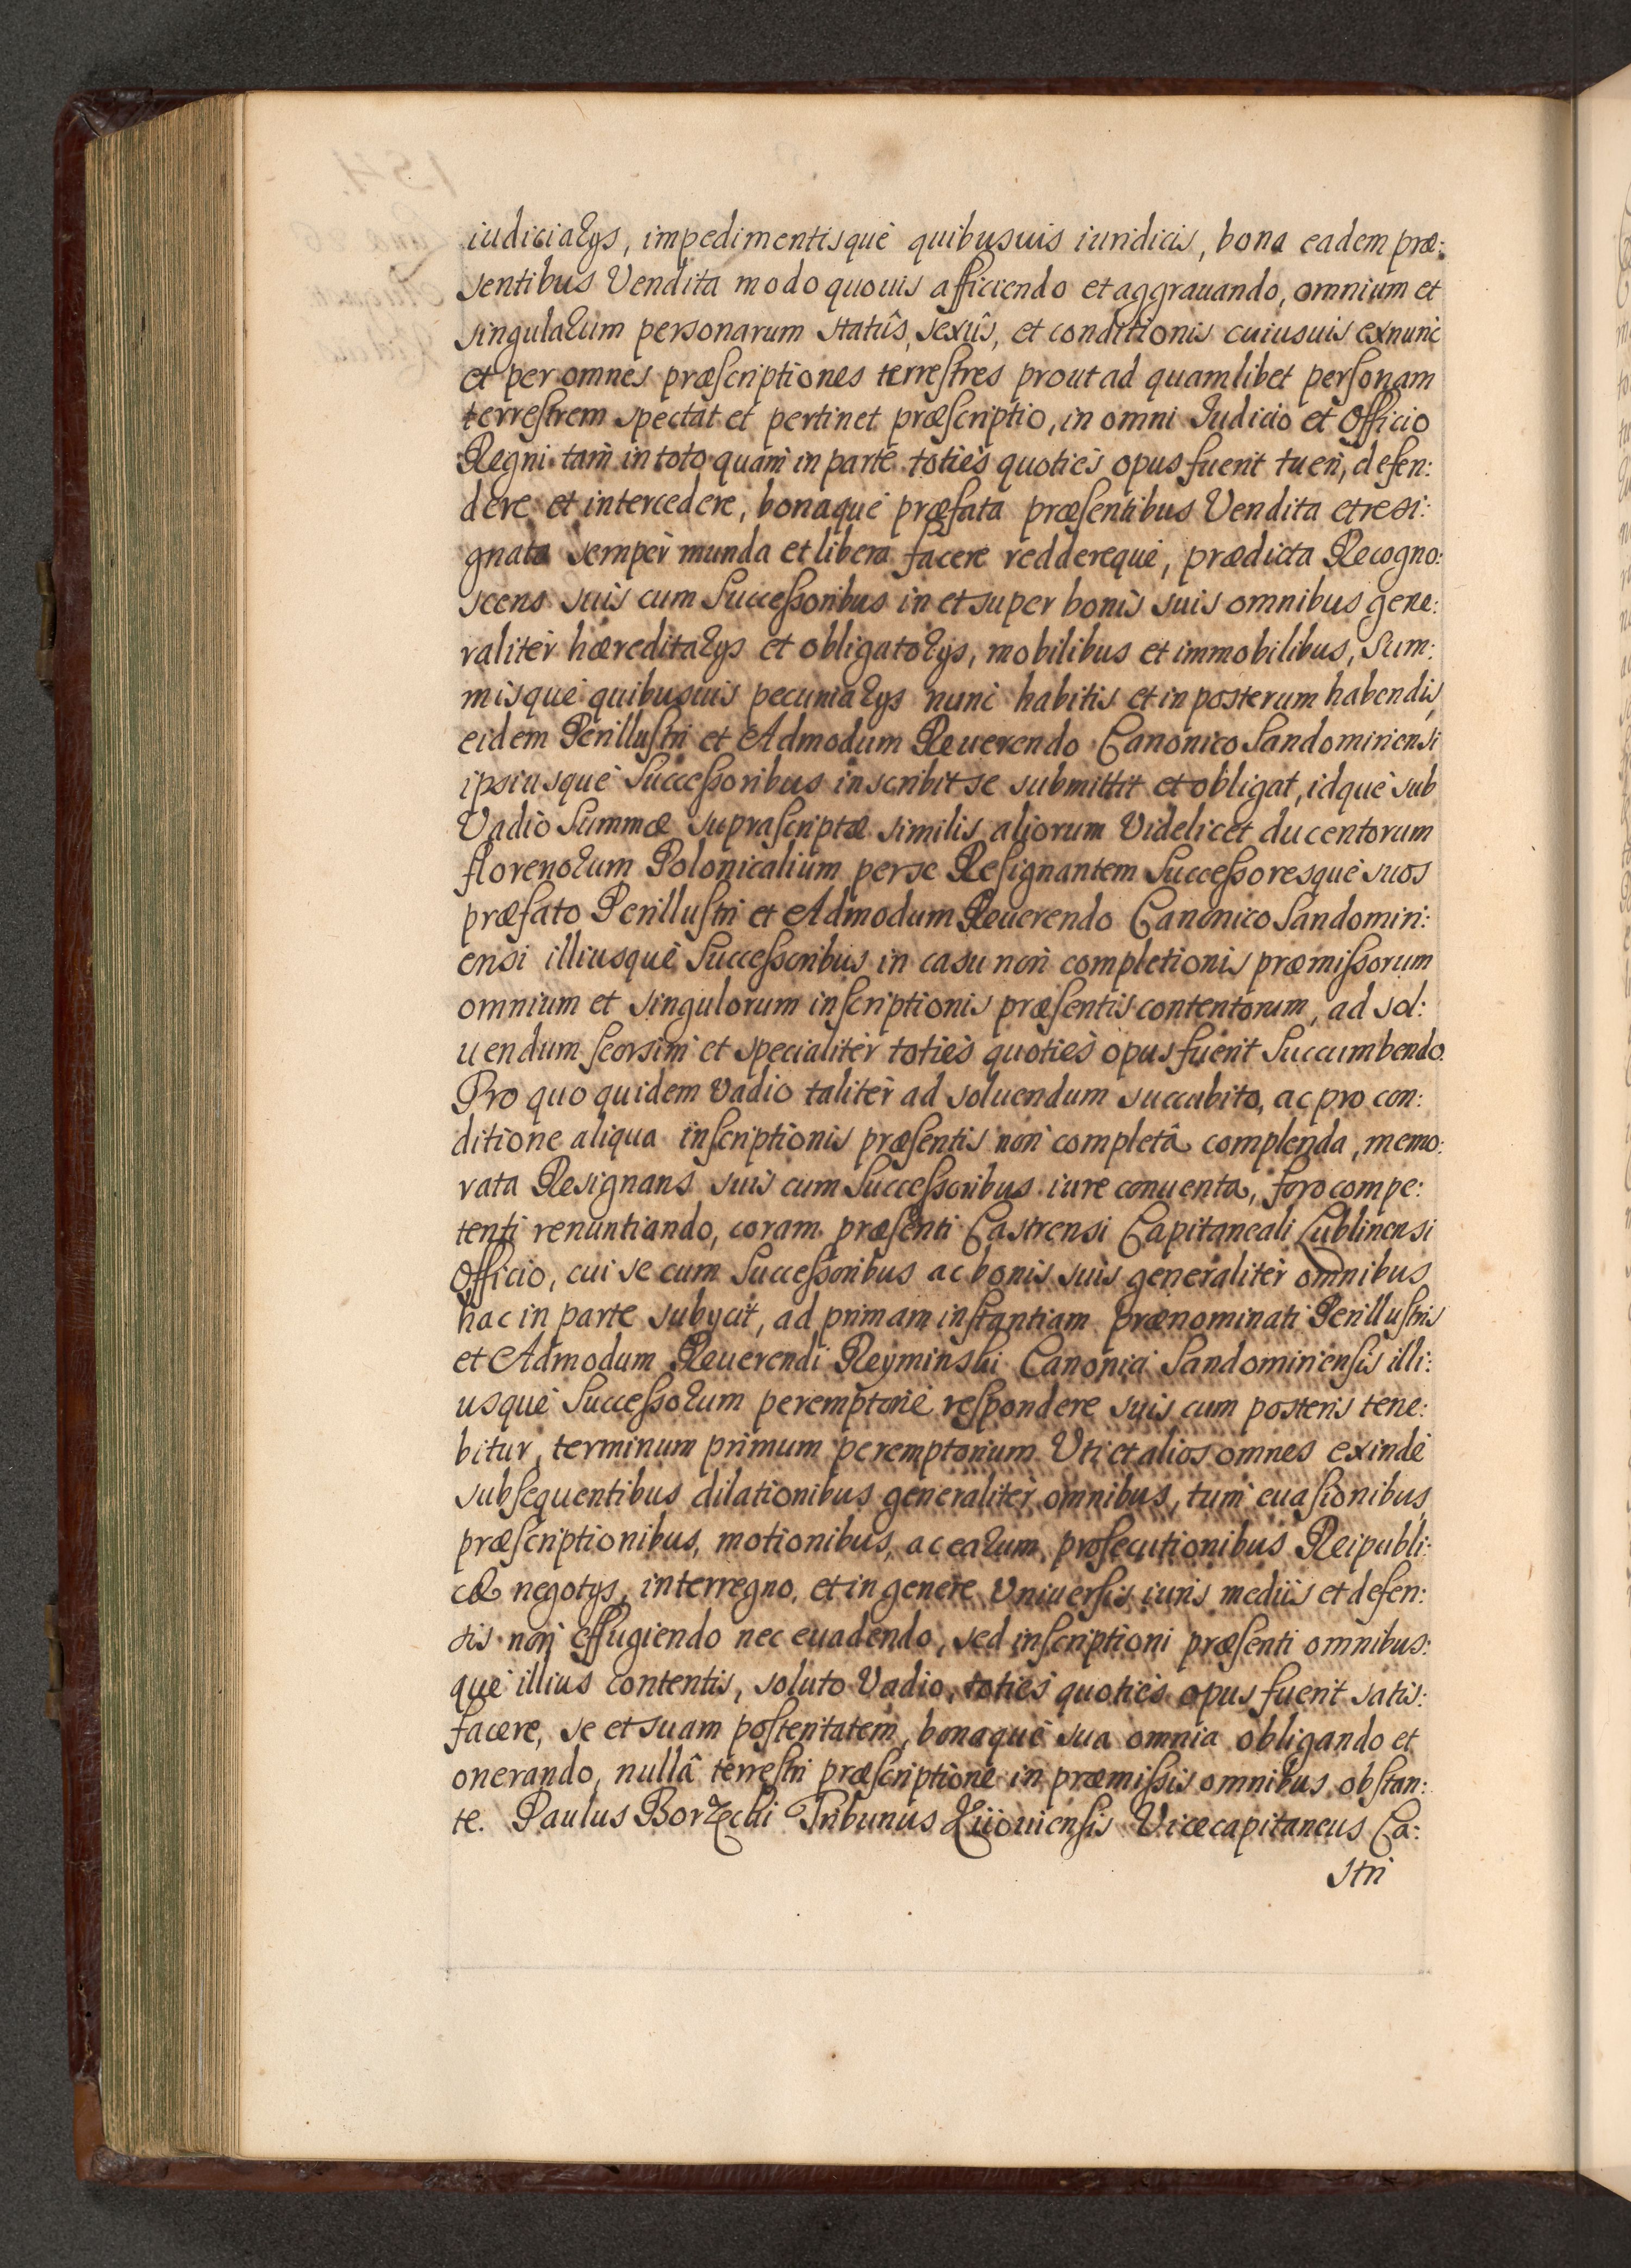 iudiciarijs, impedimentisque quibusuis iuridicis, bona eadem præ:
sentibus Vendita modo quouis afficiendo et aggrauando, omnium et
singularum personarum statûs, sexûs, et conditionis cuiusuis exnunc
et per omnes præscriptiones terrestres prout ad quamlibet personam
terrestrem spectat et pertinet præscriptio, in omni Iudicio et Officio
Regni tam in toto quam in parte toties quoties opus fuerit tueri, defen:
dere et intercedere, bonaque præfata præsentibus Vendita et resi:
gnata semper munda et libera facere reddereque, prædicta Recogno:
scens suis cum Successoribus in et super bonis suis omnibus gene:
raliter hæreditarijs et obligatorijs, mobilibus et immobilibus, Sum:
misque quibusuis pecuniarijs nunc habitis et in posterum habendis,
eidem Perillustri et Admodum Reuerendo Canonico Sandomiriensi
ipsiusque Successoribus inscribit se submittit et obligat, idque sub
Vadio Summæ suprascriptæ similis aliorum Videlicet ducentorum
florenorum Polonicalium per se Resignantem Successoresque suos
præfato Perillustri et Admodum Reuerendo Canonico Sandomiri:
ensi illiusque Successoribus in casu non completionis præmissorum
omnium et singulorum inscriptionis præsentis contentorum, ad sol:
uendum seorsim et specialiter toties quoties opus fuerit Succumbendo.
Pro quo quidem Vadio taliter ad soluendum succubito, ac pro con:
ditione aliqua inscriptionis præsentis non completâ complenda, memo:
rata Resignans suis cum Successoribus iure conuenta, foro compe:
tenti renuntiando, coram præsenti Castrensi Capitaneali Lublinensi
Officio, cui se cum Successoribus ac bonis suis generaliter omnibus
hac in parte subycit, ad primam instantiam prænominati Perillustris
et Admodum Reuerendi Reyminski Canonici Sandomiriensis illi:
usque Successorum peremptorie respondere suis cum posteris tene:
bitur, terminum primum peremptorium Uti et alios omnes exinde
subsequentibus dilationibus generaliter omnibus, tum euasionibus,
præscriptionibus, motionibus, ac earum prosecutionibus Reipubli:
cæ negotys, interregno, et in genere Vniuersis iuris mediis et defen:
sis non effugiendo nec euadendo, sed inscriptioni præsenti omnibus:
que illius contentis, soluto Vadio, toties quoties opus fuerit satis:
facere, se et suam posteritatem, bonaque sua omnia obligando et
onerando, nullâ terrestri præscriptione in præmissis omnibus obstan:
te. Paulus Borzecki Tribunus Kiiouiensis Vicecapitaneus Ca:
stri